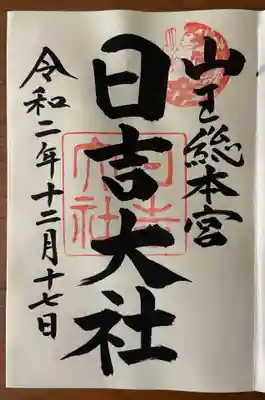 山王総本宮
日吉大社
令和二年十二月十七日